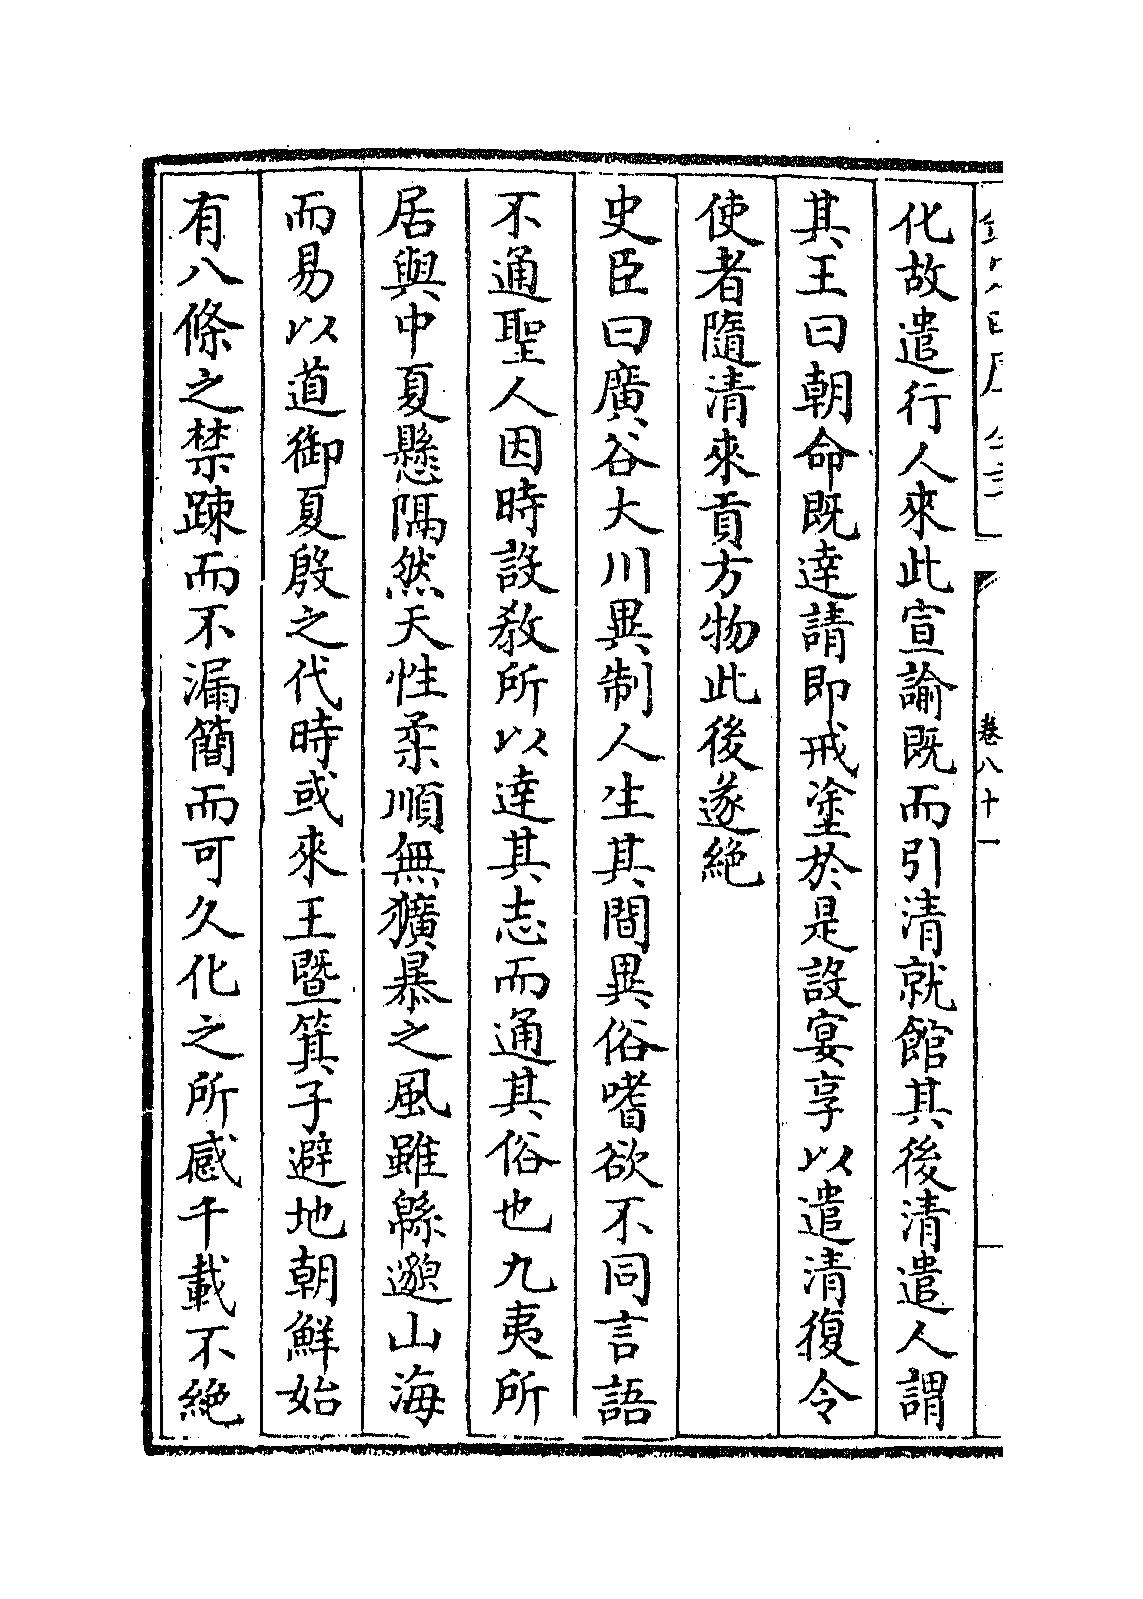 化故遣行人來此宣諭既而引清就館其後清遣人謂
其王曰朝命既達請即戒塗於是設宴享以遣清復令
使者隨清來貢方物此後遂絶
史臣曰廣谷大川異制人生其間異俗嗜欲不同言語
不通聖人因時設教所以達其志而通其俗也九夷所
居與中夏懸隔然天性柔順無獷暴之風雖緜邈山海
而易以道御夏殷之代時或來王暨箕子避地朝鮮始
有八條之禁踈而不漏簡而可久化之所感千載不絶
卷八十一